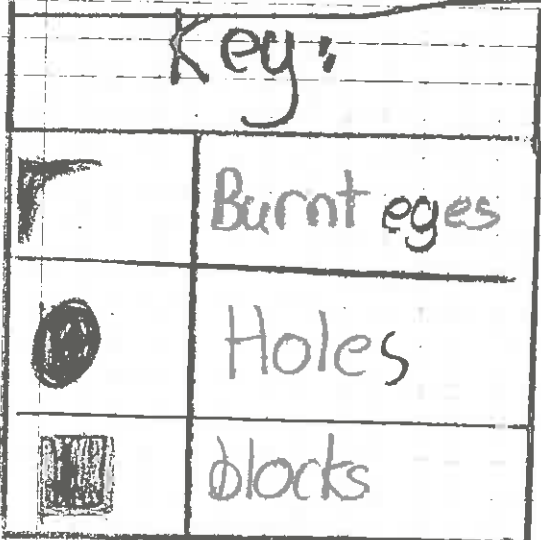 Key:
Burnt eges
Holes
blocks